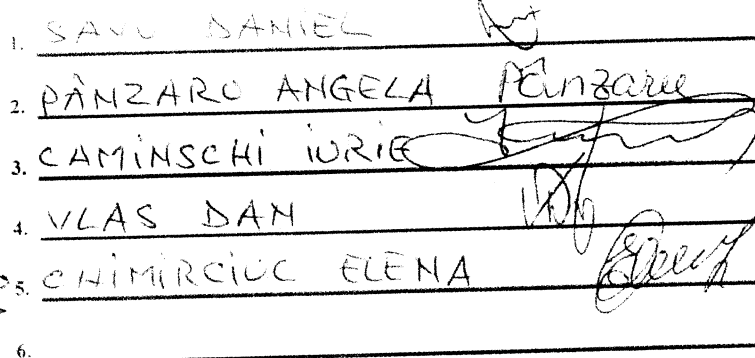 1. SAVU DANIEL
2. PÂNZARU ANGELA Pânzaru
3. CAMINSCHI IURIE
4. VLAS DAN
5. CHIMIRCIUC ELENA
6.